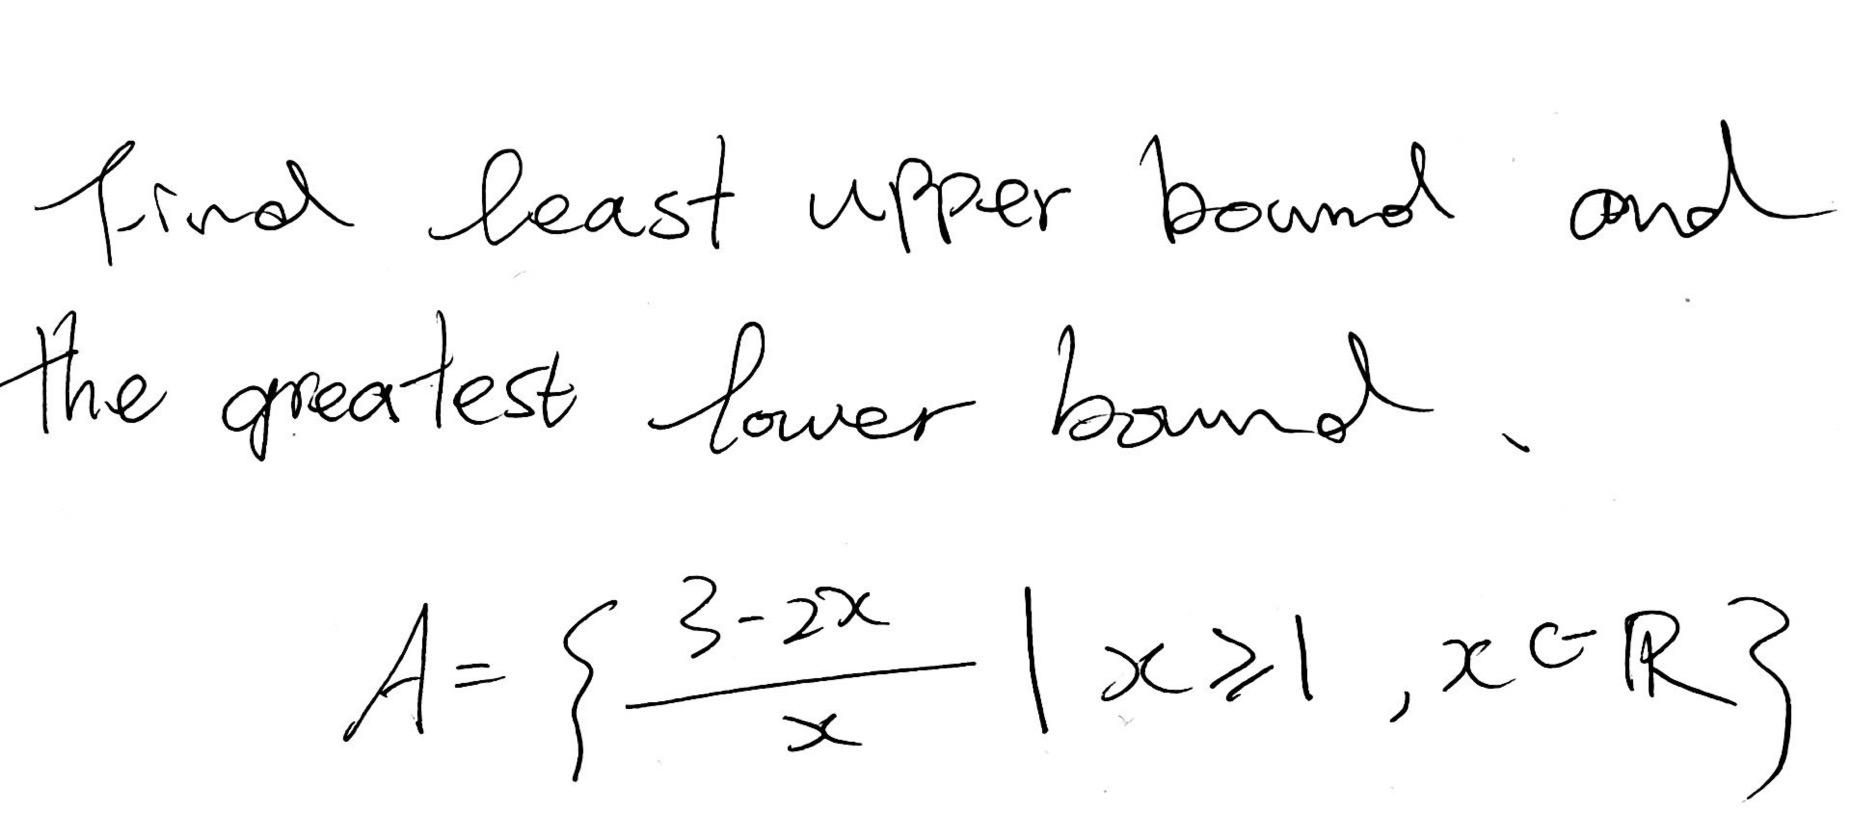 find least upper bound and
the greatest lower bound.
A = { 3-2x / x | x ⩾ 1 , x ∈ ℝ }